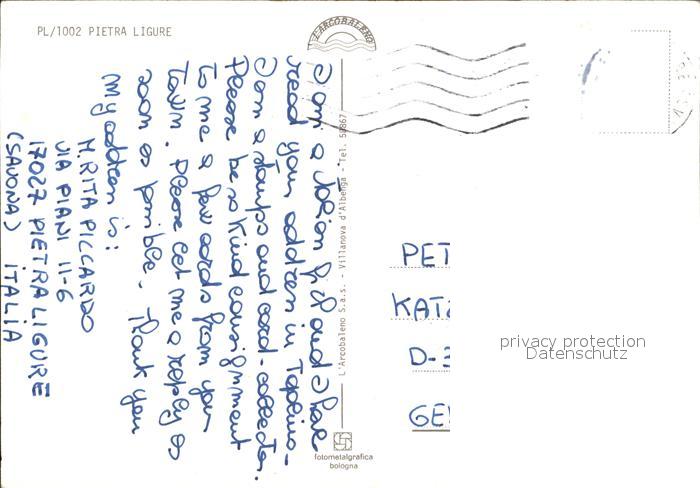 PL/1002 PIETRA LIGURE
L'ARCOBALENO
I am a Italian girl and I have
read your address in Topolino.
I am a stamps and card-collector.
Please be so kind consignment
to me a few cards from your
Town. Please let me a reply as
soon as possible. Thank you
My address is:
M. RITA PICCARDO
VIA PIANI 11-6
17027 PIETRA LIGURE
(SAVONA) ITALIA
L'Arcobaleno S.a.s. - Villanova d'Albenga - Tel. 50867
fotometalgrafica
bologna
PET
KATZ
D-3
GE
privacy protection
Datenschutz